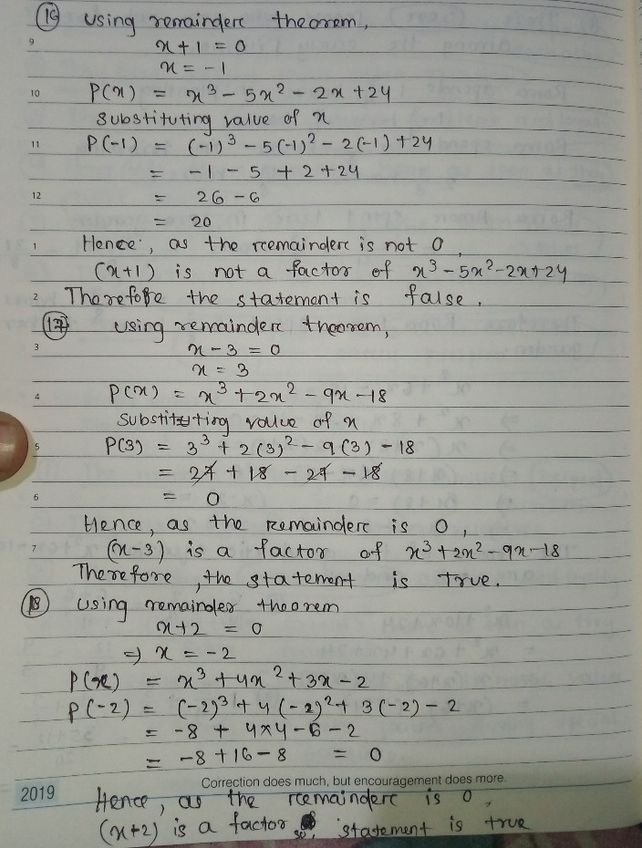 16 Using remaindere theorem,
9 x+1 = 0
x = -1
10 P(x) = x³ - 5x² - 2x + 24
Substituting value of x
11 P(-1) = (-1)³ - 5(-1)² - 2(-1) + 24
= -1 - 5 + 2 + 24
12 = 26 - 6
= 20
1 Hence, as the reemaindere is not 0,
(x+1) is not a factor of x³ - 5x² - 2x + 24
2 Therefore the statement is false.
17 Using remaindere theorem,
3 x - 3 = 0
x = 3
4 P(x) = x³ + 2x² - 9x - 18
Substituting value of x
5 P(3) = 3³ + 2(3)² - 9(3) - 18
= 27 + 18 - 27 - 18
6 = 0
Hence, as the remaindere is 0,
7 (x-3) is a factor of x³ + 2x² - 9x - 18
Therefore, the statement is true.
18 Using remainder theorem
x+2 = 0
⇒ x = -2
P(x) = x³ + 4x² + 3x - 2
P(-2) = (-2)³ + 4(-2)² + 3(-2) - 2
= -8 + 4×4 - 6 - 2
= -8 + 16 - 8 = 0
Correction does much, but encouragement does more.
2019 Hence, as the reemaindere is 0,
(x+2) is a factor so, statement is true